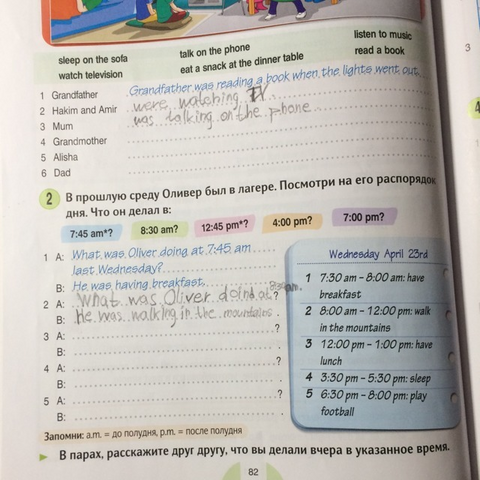 sleep on the sofa
talk on the phone
listen to music
watch television
eat a snack at the dinner table
read a book
3
1 Grandfather Grandfather was reading a book when the lights went out.
2 Hakim and Amir were watching TV
3 Mum was talking on the phone
4 Grandmother
5 Alisha
6 Dad
4
2 В прошлую среду Оливер был в лагере. Посмотри на его распорядок
дня. Что он делал в:
7:45 am*? 8:30 am? 12:45 pm*? 4:00 pm? 7:00 pm?
1 A: What was Oliver doing at 7:45 am
last Wednesday?
B: He was having breakfast.
2 A: What was Oliver doing at 8:30 am. ?
B: He was walking in the mountains.
3 A: ?
B:
4 A: ?
B:
5 A: ?
B:
Wednesday April 23rd
1 7:30 am – 8:00 am: have
breakfast
2 8:00 am – 12:00 pm: walk
in the mountains
3 12:00 pm – 1:00 pm: have
lunch
4 3:30 pm – 5:30 pm: sleep
5 6:30 pm – 8:00 pm: play
football
Запомни: a.m. = до полудня, p.m. = после полудня
В парах, расскажите друг другу, что вы делали вчера в указанное время.
82